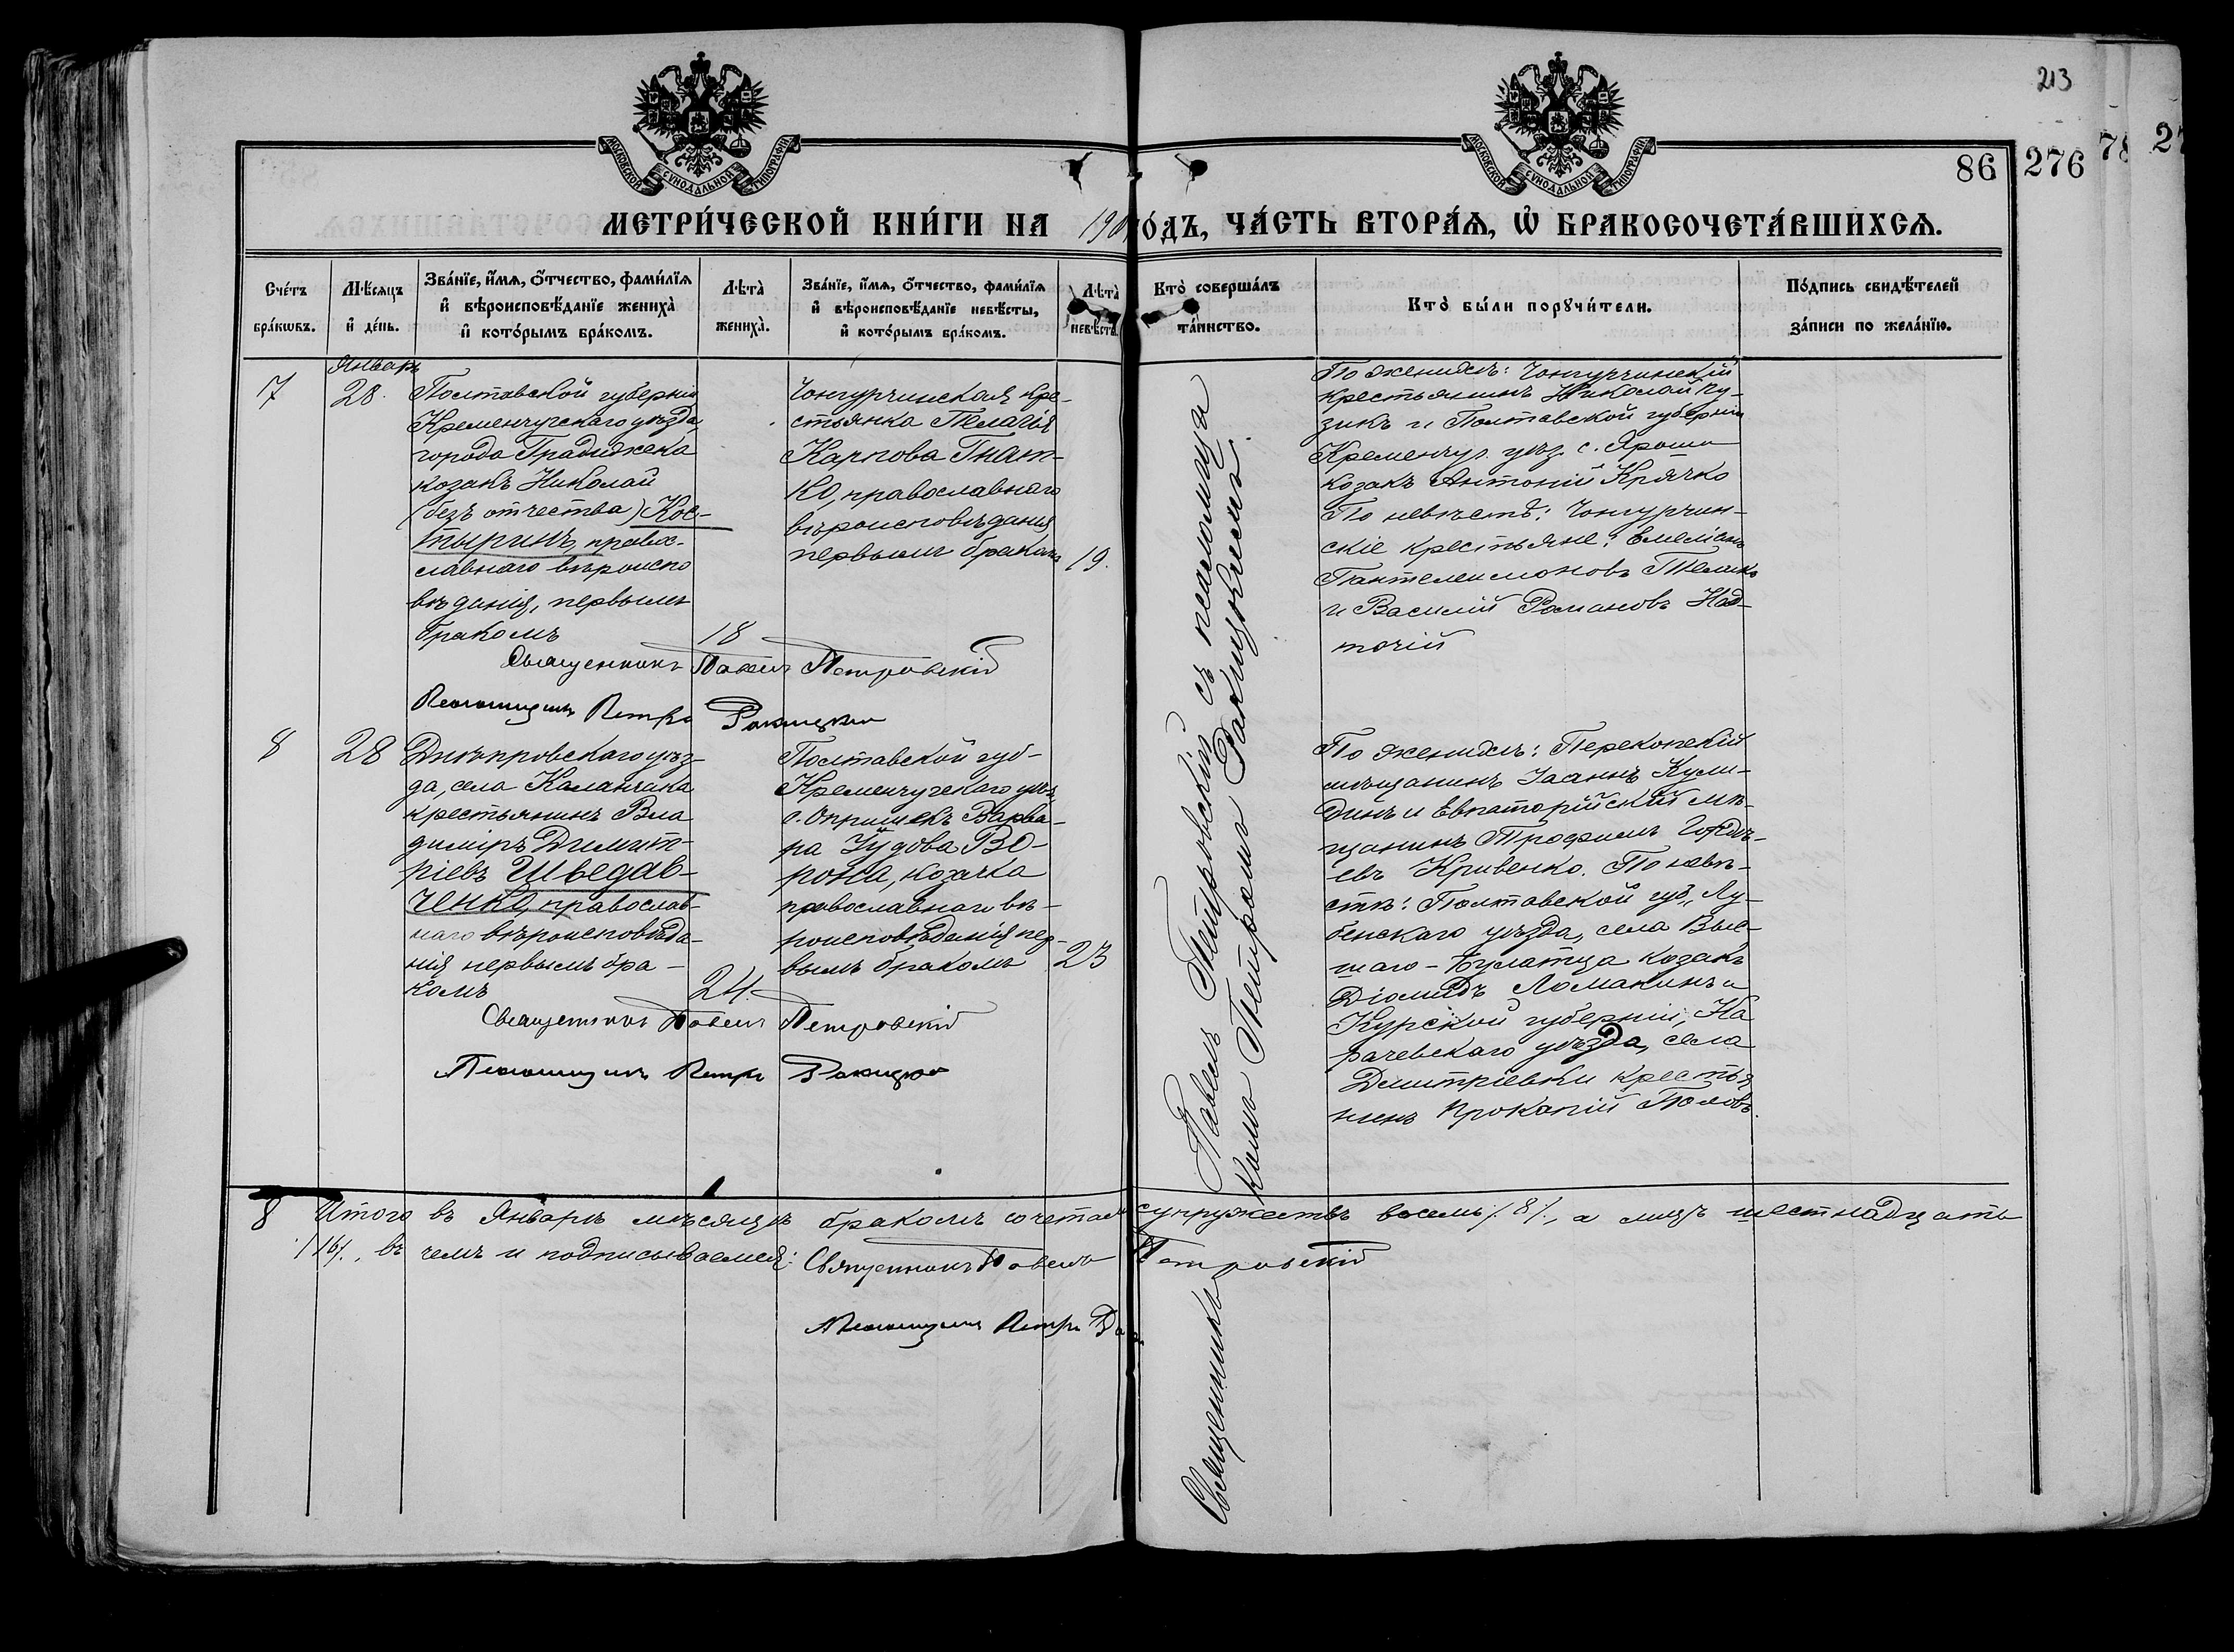 213
86
276
78
27
МОСКОВСКОЙ СѴНОДАЛЬНОЙ ТИПОГРАФІИ
МОСКОВСКОЙ СѴНОДАЛЬНОЙ ТИПОГРАФІИ
МЕТРИ́ЧЕСКОЙ КНИ́ГИ НА 190 ГО́ДЪ, ЧА́СТЬ ВТОРА́Ѧ, Ѡ҆ БРАКОСОЧЕТА́ВШИХСѦ.
Сче́тъ
бра́кѡвъ.
Мѣ́сѧцъ
и҆ де́нь.
Зва́нїе, и҆́мѧ, о҆́тчество, фами́лїѧ
и҆ вѣроисповѣ́данїе жениха̀
и҆ кото́рымъ бра́комъ.
Лѣта̀
жениха̀.
Зва́нїе, и҆́мѧ, о҆́тчество, фами́лїѧ
и҆ вѣроисповѣ́данїе невѣ́сты,
и҆ кото́рымъ бра́комъ.
Лѣта̀
невѣ́сты.
Кто̀ соверша́лъ
та́инство.
Кто̀ бы́ли порꙋчи́тели.
По́дпись свидѣ́телей
за́писи по жела́нїю.
7
Январь
28.
Полтавской губерніи
Кременчугскаго уѣзда,
города Градижска
козакъ Николай
(безъ отчества) Кос-
тыринъ, правос-
славнаго вѣроиспо
вѣданія, первымъ
бракомъ
18
Чонгурчинская кре-
стьянка Пелагія
Карпова Гнат-
ко, православнаго
вѣроисповѣданія
первымъ бракомъ
19.
По женихѣ: Чонгурчинскій
крестьянинъ Николай Пу-
зикъ и Полтавской губерніи
Кременчуг. уѣз. с. Яроши
козакъ Антоній Крячко
По невѣстѣ: Чонгурчин-
скіе крестьяне: Емеліанъ
Пантелеимоновъ
и Василій Романовъ Над-
точій
Священникъ Павелъ Петровскій
Псаломщикъ Петръ Ракицкій
8
28
Днѣпровскаго уѣз-
да, села Каланчака
крестьянинъ Вла
диміръ Димит-
ріевъ Шведав-
ченко, православ-
наго вѣроисповѣда-
нія первымъ бра-
комъ
24.
Полтавской губ-
Кременчугскаго уѣз,
с. Опришекъ Варва-
ра Іудова Во-
рона, козачка
православнаго вѣ-
роисповѣданія пер-
вымъ бракомъ
23
По женихѣ: Перекопскій
мѣщанинъ Іоаннъ Кули-
динъ и Евпаторійскій мѣ-
щанинъ Трофимъ Гордѣ-
евъ Кривенко. По невѣ-
стѣ: Полтавской губ., Лу-
бенскаго уѣзда, села Выс-
шаго-Булатца козакъ
Діомидъ Ломакинъ и
Курской губерніи, Ка
рачевскаго уѣзда, села
Дмитріевки крестья
нинъ Прокопій
Священникъ Павелъ Петровскій
Псаломщикъ Петръ Ракицкій
Священникъ Павелъ Петровскій съ псаломщи
комъ Петромъ Ракицкимъ.
8 Итого въ Январѣ мѣсяцѣ бракомъ сочетан супружествъ восемь /8/, а лицъ шестнадцать
/16/, въ чемъ и подписываемся: Священникъ Павелъ Петровскій
Псаломщикъ Петръ